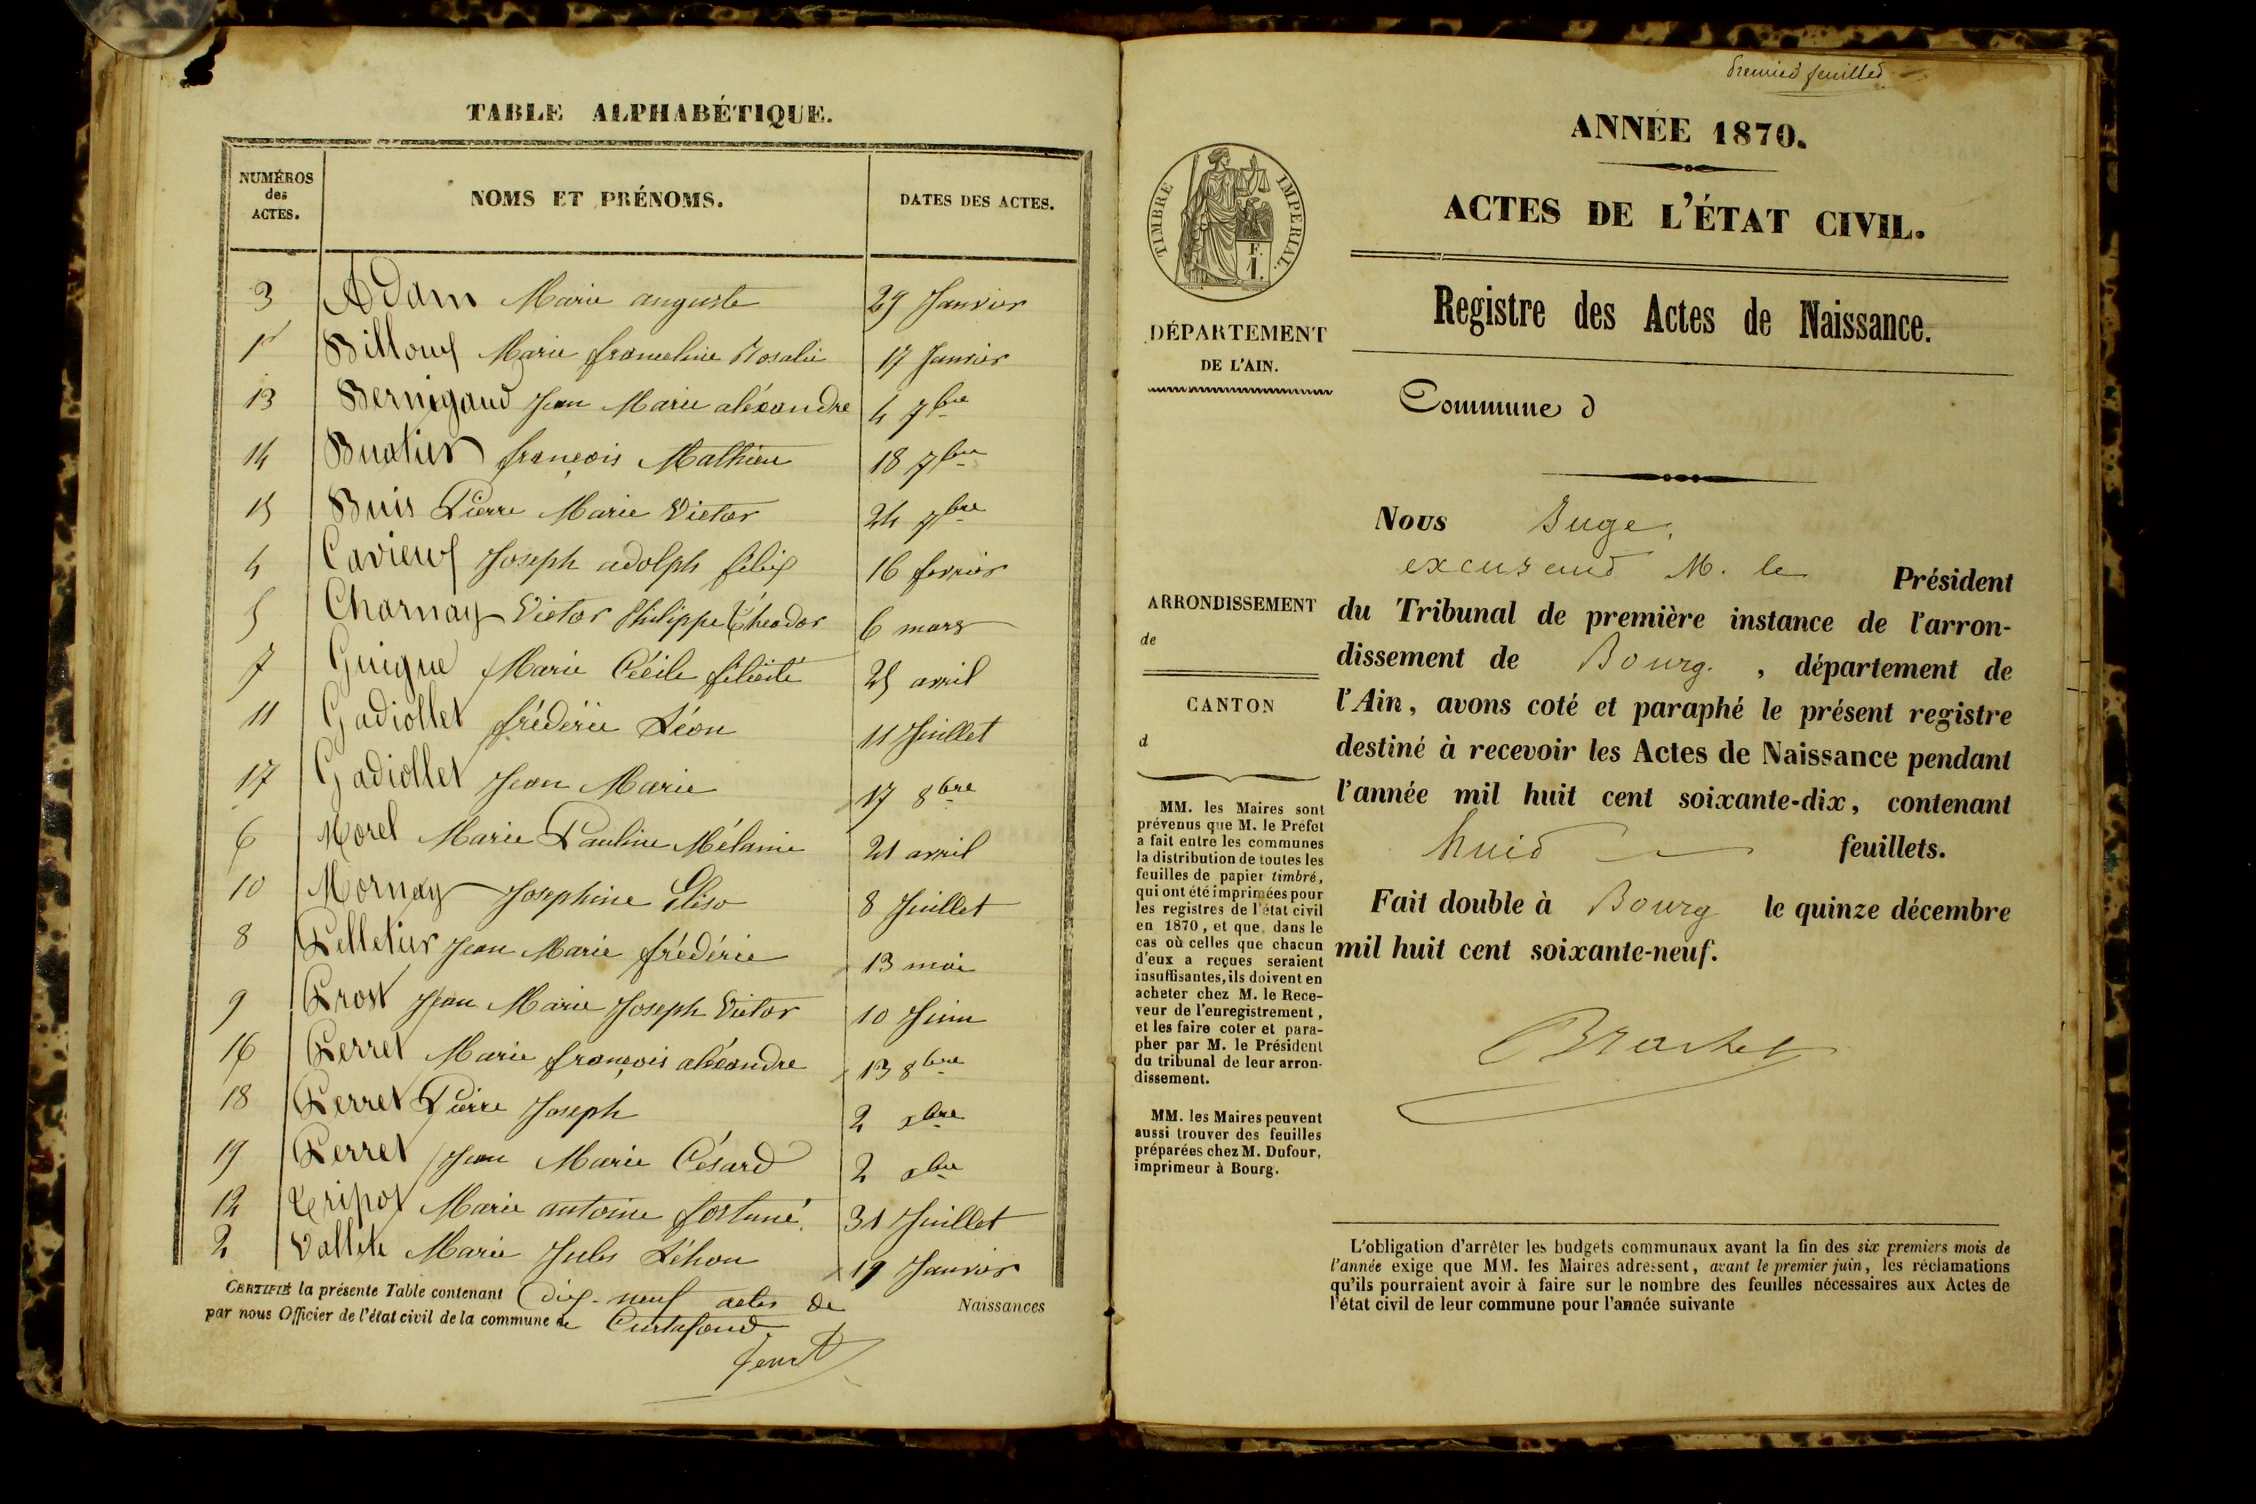 TABLE ALPHABÉTIQUE.
NUMÉROS des ACTES. NOMS ET PRÉNOMS. DATES DES ACTES.
3 Adam Marie auguste 29 Janvier
1er Billoux Marie franceline Rosalie 17 Janvier
13 Bernigaud Jean Marie aléxandre 4 7bre
14 Buatier françois Mathieu 18 7bre
15 Buis Pierre Marie Victor 24 7bre
4 Cavieux Joseph adolph félix 16 fevrier
5 Charnay Victor Philippe Théodor 6 mars
7 Guigue Marie Cécile félicité 25 avril
11 Gadiollet frédéric Léon 11 Juillet
17 Gadiollet Jean Marie 17 8bre
6 Morel Marie Pauline Mélanie 21 avril
10 Mornay Josephine Élisa 8 Juillet
8 Pelletier Jean Marie frédéric 13 mai
9 Prost Jean Marie Joseph Victor 10 Juin
16 Perret Marie françois aléxandre 13 8bre
18 Perret Pierre Joseph 2 xbre
19 Perret Jean Marie Césard 2 xbre
12 Tripoz Marie antoine fortuné. 31 Juillet
2 Vallete Marie Jules Léhon 19 Janvier
CERTIFIÉ la présente Table contenant Dix-neuf actes de Naissances
par nous Officier de l'état civil de la commune de Curtafond.
premier feuillet
ANNÉE 1870.
ACTES DE L'ÉTAT CIVIL.
Registre des Actes de Naissance.
TIMBRE IMPERIAL.
F.
1.
DÉPARTEMENT
DE L'AIN.
Commune d
ARRONDISSEMENT
de
CANTON
d
MM. les Maires sont
prévenus que M. le Préfet
a fait entre les communes
la distribution de toutes les
feuilles de papier timbré,
qui ont été imprimées pour
les registres de l'état civil
en 1870, et que, dans le
cas où celles que chacun
d'eux a reçues seraient
insuffisantes, ils doivent en
acheter chez M. le Rece-
veur de l'enregistrement,
et les faire coter et para-
pher par M. le Président
du tribunal de leur arron-
dissement.
MM. les Maires peuvent
aussi trouver des feuilles
préparées chez M. Dufour,
imprimeur à Bourg.
Nous Juge,
excusant M. le Président
du Tribunal de première instance de l'arron-
dissement de Bourg. , département de
l'Ain, avons coté et paraphé le présent registre
destiné à recevoir les Actes de Naissance pendant
l'année mil huit cent soixante-dix, contenant
huit feuillets.
Fait double à Bourg le quinze décembre
mil huit cent soixante-neuf.
L'obligation d'arrêter les budgets communaux avant la fin des six premiers mois de
l'année exige que MM. les Maires adressent, avant le premier juin, les réclamations
qu'ils pourraient avoir à faire sur le nombre des feuilles nécessaires aux Actes de
l'état civil de leur commune pour l'année suivante